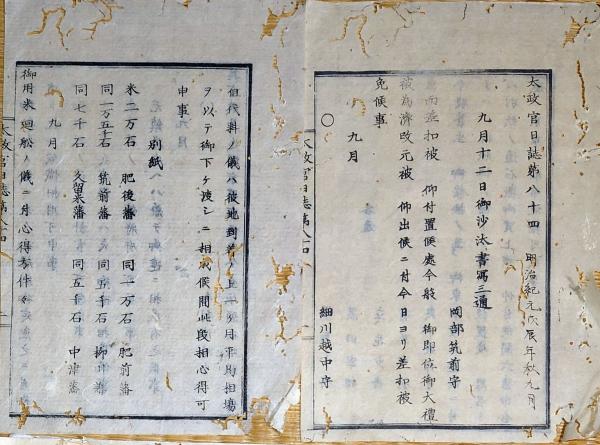 太政官日誌第八十四　明治紀元戊辰年秋九月
九月十二日御沙汰書寫三通
岡部筑前守
而差扣被　仰付置候處今般　御即位御大禮
被為濟改元被　仰出候ニ付今日ヨリ差扣被
免候事
九月
○
細川越中守
但代料ノ儀ハ彼地到着ノ上一ヶ月平均相場
ヲ以テ御下ヶ渡シニ相成候間此段相心得可
申事
別紙
米二万石　肥後藩　同一万石　肥前藩
同一万五千石　筑前藩　同五千石　柳川藩
同七千石　久留米藩　同五千石　中津藩
九月
御用米廻船ノ儀ニ付心得方件々
太政官日誌第八十四